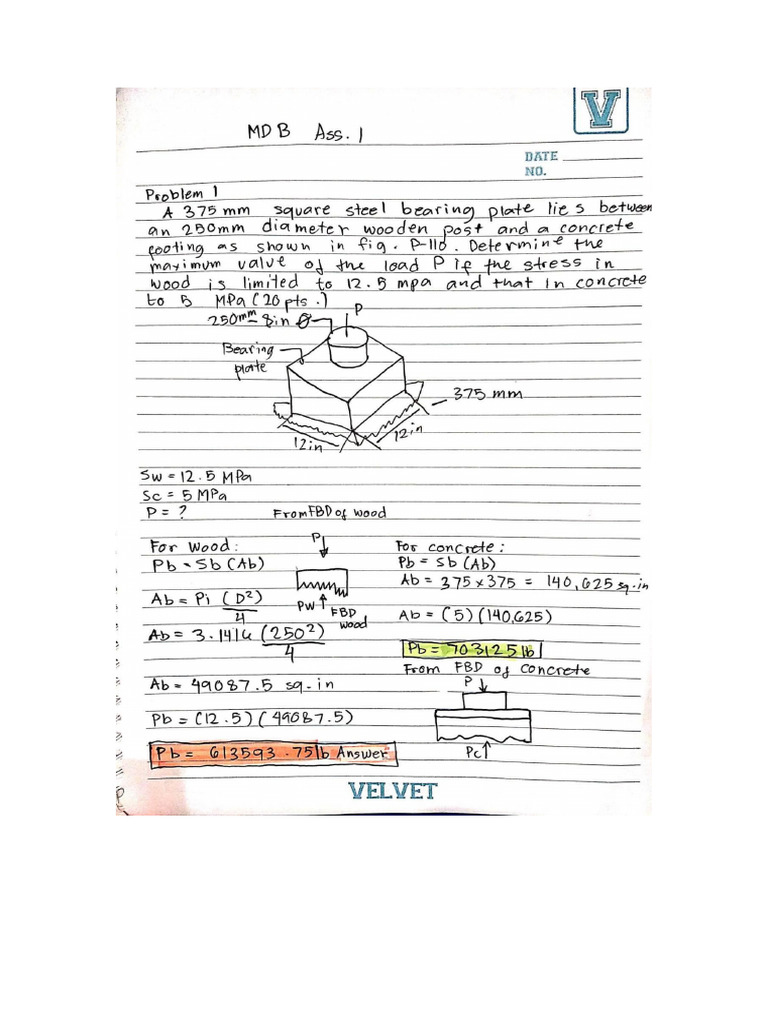 V
MDB Ass. 1
DATE
NO.
Problem 1
A 375 mm square steel bearing plate lies between
an 250mm diameter wooden post and a concrete
footing as shown in fig. P-110. Determine the
maximum value of the load P if the stress in
wood is limited to 12.5 mpa and that in concrete
to 5 MPa (20 pts.)
250mm - 8in Ø
P
Bearing
plate
375 mm
12in
12in
Sw = 12.5 MPa
Sc = 5 MPa
P = ?
From FBD of wood
For wood:
Pb = Sb (Ab)
Ab = Pi (D²)
4
Ab = 3.1416 (250²)
4
Ab = 49087.5 sq.in
Pb = (12.5) (49087.5)
Pb = 613593.75 lb Answer
P
Pw
FBD
wood
For concrete:
Pb = Sb (Ab)
Ab = 375 x 375 = 140,625 sq.in
Ab = (5) (140,625)
Pb = 703125 lb
From FBD of concrete
P
Pc
VELVET